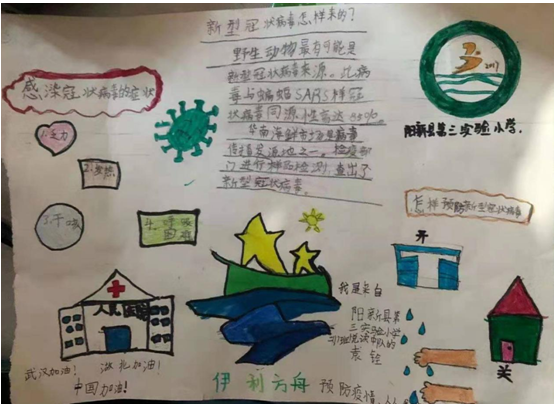 新型冠状病毒怎样来的?
野生动物最有可能是
新型冠状病毒来源。此病
毒与蝙蝠SARS样冠
状病毒同源性高达85%。
华南海鲜市场是病毒
之一。检疫部
门进行样品检测,查出了
新型冠状病毒。
感染冠状病毒的症状
1.乏力
2.发热
3.干咳
4.呼吸
困难
2017
阳新县第三实验小学.
怎样预防新型冠状病毒
开
关
我是来自
阳新县第
三实验小学
中队的
袁
人民医院
武汉加油!
湖北加油!
中国加油!
伊利方舟 预防疫情,人人